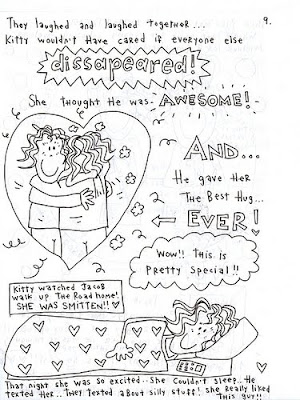 They laughed and laughed together... 9.
Kitty wouldn't Have cared if everyone else
dissapeared!
She thought He was AWESOME!
AND...
He gave Her
The Best Hug...
EVER!
Wow!! This is
Pretty Special!!
Kitty watched Jacob
walk up The Road home!
SHE WAS SMITTEN!!
That night she was so excited.. She Couldn't sleep.. He
texted Her.. They Texted about silly stuff! she Really liked
This guy!!